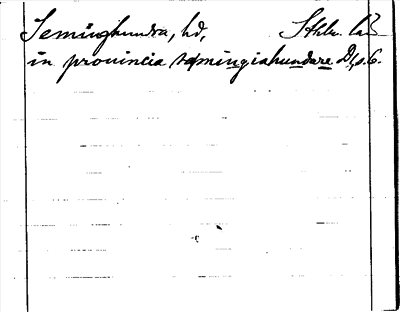 Seminghundra, hd, Sthlm. län
in prouincia sæmingiahundare D₁, s. 6.